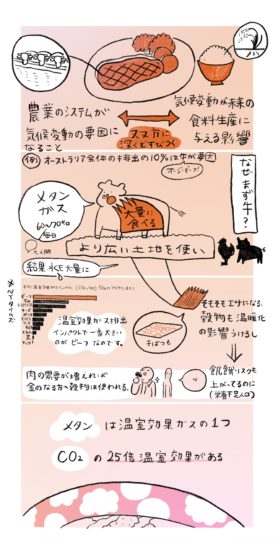 農業のシステムが
気候変動の要因に
なること
双方に
深くむすびつく
気候変動が未来の
食料生産に
与える影響
オーストラリア全体の排出の10%は牛が要因
なぜまず牛?
メタン
ガス
毎日
大量に
食べる
より広い土地を使い
結果 水も大量に
温室効果ガス排出
インパクトで一番大きい
のがビーフ なのです。
そもそもエサになる
穀物も温暖化
の影響うけるし
肉の需要が増えれば
金のなる方へ穀物は使われる。
飢餓リスクも
上がってるのに
(栄養不足人口)
メタン は温室効果ガスの1つ
CO2 の 25倍 温室効果がある